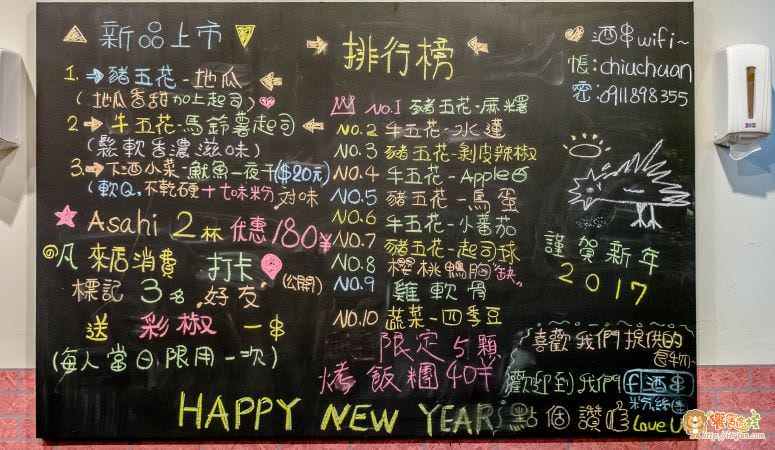 新品上市
1. 豬五花-地瓜
(地瓜香甜加上起司)
2 牛五花-馬鈴薯起司
(鬆軟香濃滋味)
3. 下酒小菜-魷魚一夜干($20元)
(軟Q,不乾硬+七味粉 对味
Asahi 2杯 优惠180¥
凡來店消費 打卡(公開)
標記3名好友
送 彩椒 一串
(每人當日,限用一次)
排行榜
NO.1 豬五花-麻糬
NO.2 牛五花-水蓮
NO.3 豬五花-剝皮辣椒
NO.4 牛五花-Apple
NO.5 豬五花-馬蛋
NO.6 牛五花-小蕃茄
NO.7 豬五花-起司球
NO.8 櫻桃鴨胸"缺"
NO.9 雞軟骨
NO.10 蔬菜-四季豆
限定5顆
烤飯糰40¥
酒串wifi~
帳:chiuchuan
密:0911898355
謹賀新年
2017
喜歡我們提供的
食物~
歡迎到我們 酒串
粉絲團
點個讚 Love U
HAPPY NEW YEAR